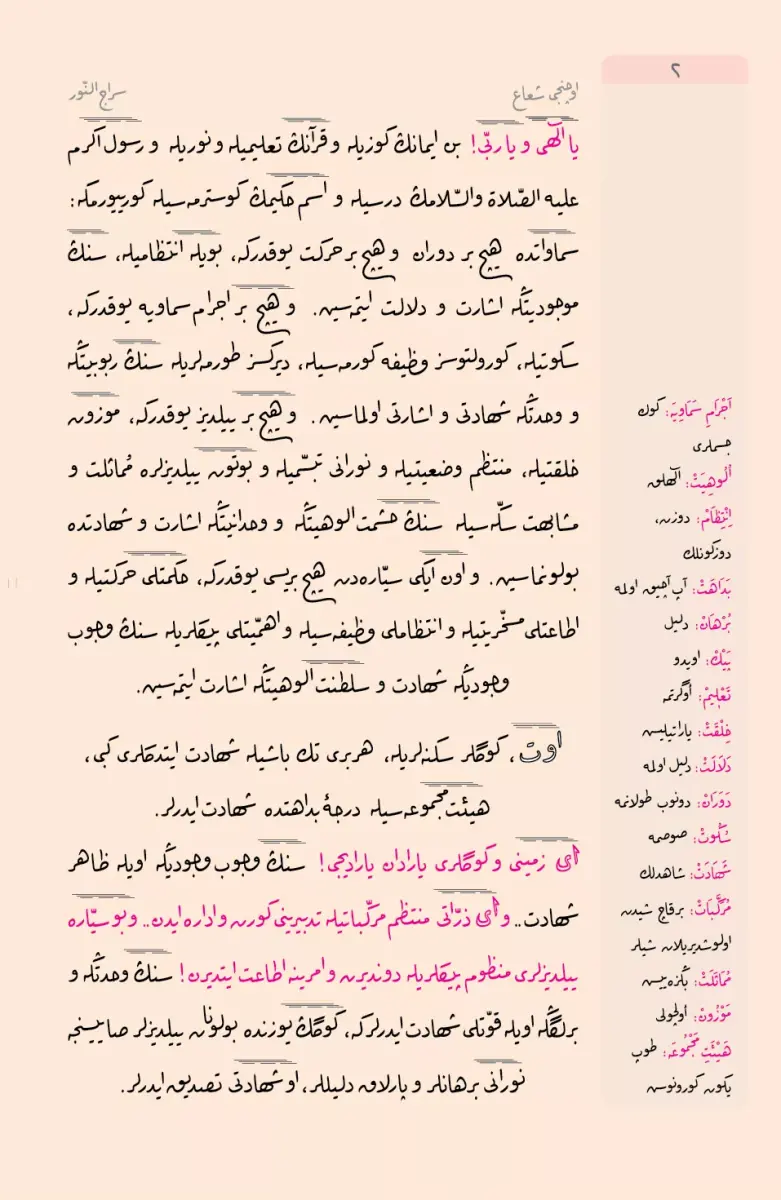 ٢
اوچنجی شعاع
سراج النّور
يا الٰهی و يا ربّی! بن ايمانڭ كوزيله و قرآنڭ تعليميله و نوريله و رسول اكرم
عليه الصّلاة والسّلامڭ درسيله و اسم حكيمڭ كوسترمه‌سيله كورييورمكه:
سماواتده هيچ بر دوران و هيچ بر حركت يوقدركه، بويله انتظاميله، سنڭ
موجوديتڭه اشارت و دلالت ايتمه‌سين. و هيچ بر اجرام سماويه يوقدركه،
سكوتيله، كورولتوسز وظيفه كورمه‌سيله، ديركسز طورمه‌لريله سنڭ ربوبيتڭه
و وحدتڭه شهادتی و اشارتی اولماسين. و هيچ بر ييلديز يوقدركه، موزون
خلقتيله، منتظم وضعيتيله و نورانی تبسّميله و بوتون ييلديزلره مُماثلت و
مشابهت سكّه‌سيله سنڭ حشمت الوهيتڭه و وحدانيتڭه اشارت و شهادتده
بولونماسين. و اون ايكی سيّاره‌دن هيچ بريسی يوقدركه، حكمتلی حركتيله و
اطاعتلی مسخّريتيله و انتظاملی وظيفه‌سيله و اهمّيتلی پيكلريله سنڭ وجوب
وجوديڭه شهادت و سلطنت الوهيتڭه اشارت ايتمه‌سين.
اوت، كوكلر سكنه‌لريله، هربری تك باشيله شهادت ايتدكلری كبی،
هيئت مجموعه‌سيله درجهٔ بداهتده شهادت ايدرلر.
ای زمينی و كوكلری يارادان يارادیجی! سنڭ وجوب وجوديڭه اويله ظاهر
شهادت.. و ای ذرّاتی منتظم مركّباتيله تدبيرينی كورن و اداره ايدن.. و بو سيّاره
ييلديزلری منظوم پيكلريله دونديرن و امرينه اطاعت ايتديرن! سنڭ وحدتڭه و
برلگڭه اويله قوّتلی شهادت ايدرلركه، كوگڭ يوزنده بولونان ييلديزلر صاييسنجه
نورانی برهانلر و پارلاق دليللر، او شهادتی تصديق ايدرلر.
اَجْرَامِ سَمَاوِيَه: كوك
جسملری
اُلُوهِيَتْ: الٰهلق
اِنْتِظَامْ: دوزن،
دوزكونلك
بَدَاهَتْ: آپ آچيق اولمه
بُرْهَانْ: دليل
پَيْكْ: اويدو
تَعْلِيمْ: اوگرتمه
خِلْقَتْ: ياراتيليس
دَلَالَتْ: دليل اولمه
دَوَرَانْ: دونوب طولانمه
سُكُوتْ: صوصمه
شَهَادَتْ: شاهدلك
مُرَكَّبَاتْ: برقاچ شيدن
اولوشديريلان شيلر
مُمَاثَلَتْ: بڭزه‌ييس
مَوْزُونْ: اولچولی
هَيْئَتِ مَجْمُوعَه: طوپ
يكون كورونوس